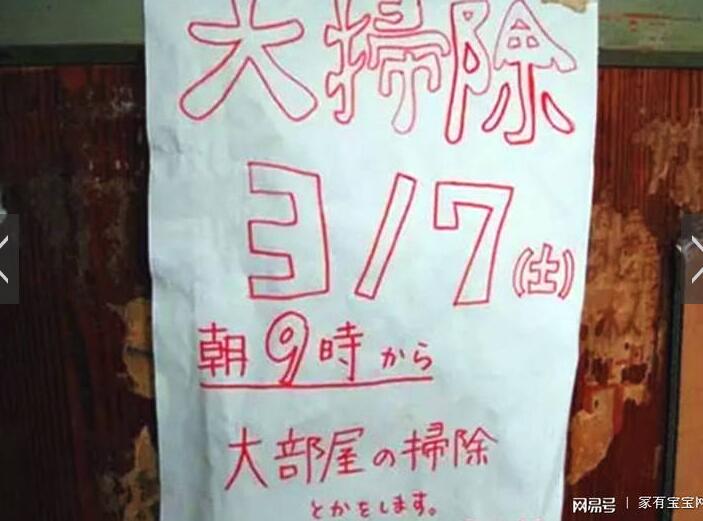 大掃除
3/7(土)
朝9時から
大部屋の掃除
とかをします。
网易号 | 家有宝宝网